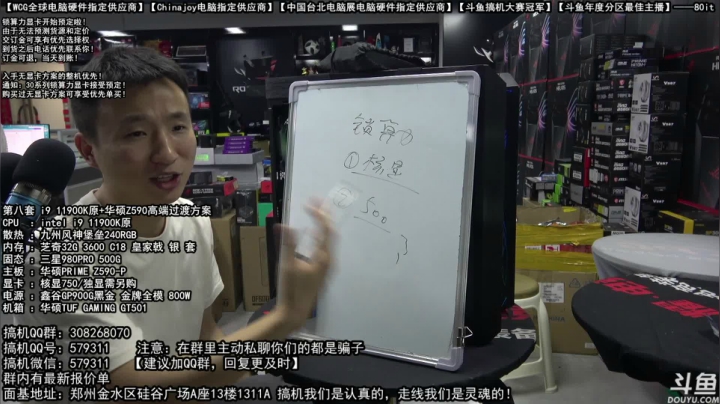 【WCG全球电脑硬件指定供应商】【Chinajoy电脑指定供应商】【中国台北电脑展电脑硬件指定供应商】【斗鱼搞机大赛冠军】【斗鱼年度分区最佳主播】——80it
锁算力显卡开始预定啦!
由于无法预测货源和定价
交订金可享有优先选择权
到货之后电话优先联系你!
订金可退,当天到账!
入手无显卡方案的整机优先!
通知:30系列锁算力显卡接受预定!
购买过无显卡方案可享受优先单买!
锁算力
①核显
500
第八套 i9 11900K原+华硕Z590高端过渡方案
CPU :intel i9 11900K原
散热 :九州风神堡垒240RGB
内存:芝奇32G 3600 C18 皇家戟 银 套
固态 :三星980PRO 500G
主板 :华硕PRIME Z590-P
显卡 :核显750/独显需另购
电源 :鑫谷GP900G黑金 金牌全模 800W
机箱 :华硕TUF GAMING GT501
搞机QQ群:308268070
搞机QQ号:579311 注意:在群里主动私聊你们的都是骗子
搞机微信:579311 【建议加QQ群,回复更及时】
群内有最新报价单
面基地址:郑州金水区硅谷广场A座13楼1311A 搞机我们是认真的,走线我们是灵魂的!
斗鱼
DOUYU.COM